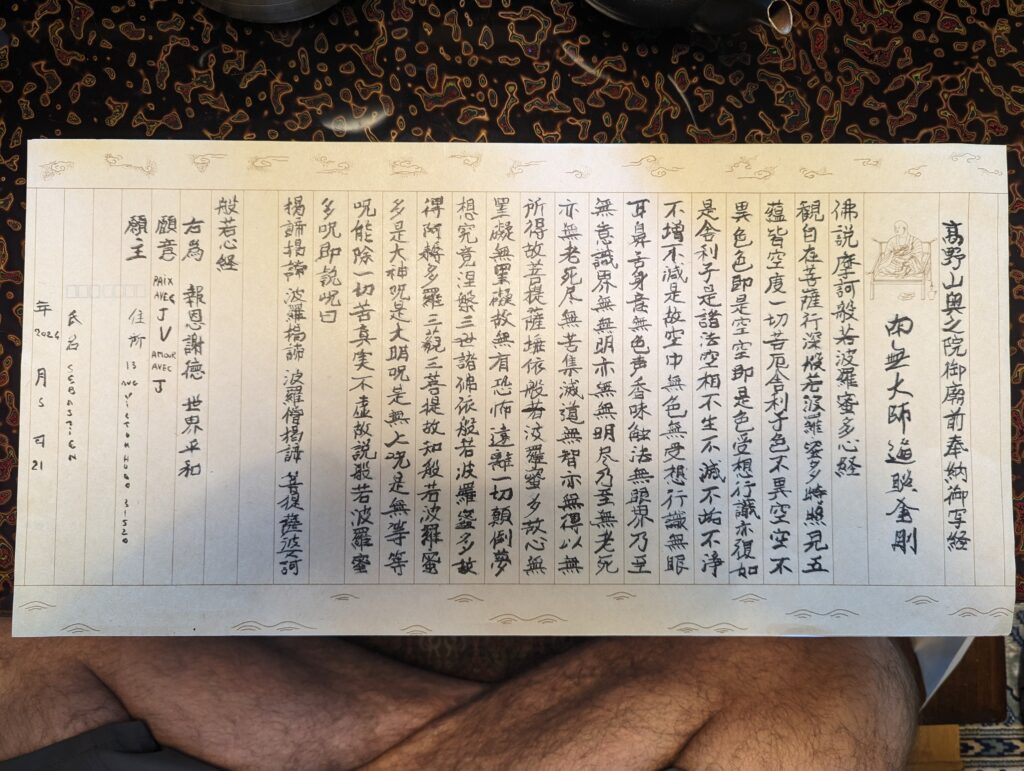 高野山奥之院御廟前奉納御写経
南無大師遍照金剛
佛説摩訶般若波羅蜜多心経
観自在菩薩行深般若波羅蜜多時照見五
蘊皆空度一切苦厄舎利子色不異空空不
異色色即是空空即是色受想行識亦復如
是舎利子是諸法空相不生不滅不垢不浄
不増不減是故空中無色無受想行識無眼
耳鼻舌身意無色声香味触法無眼界乃至
無意識界無無明亦無無明尽乃至無老死
亦無老死尽無苦集滅道無智亦無得以無
所得故菩提薩埵依般若波羅蜜多故心無
罣礙無罣礙故無有恐怖遠離一切顛倒夢
想究竟涅槃三世諸佛依般若波羅蜜多故
得阿耨多羅三藐三菩提故知般若波羅蜜
多是大神呪是大明呪是無上呪是無等等
呪能除一切苦真実不虚故説般若波羅蜜
多呪即説呪曰
羯諦羯諦 波羅羯諦 波羅僧羯諦 菩提薩婆訶
般若心経
右為 報恩謝徳 世界平和
願意 PAIX AVEC J V AMOUR AVEC J
願主 住所 13 AVE VICTOR HUGO 31520
氏名 SEBASTIEN
年 月 5 日 21